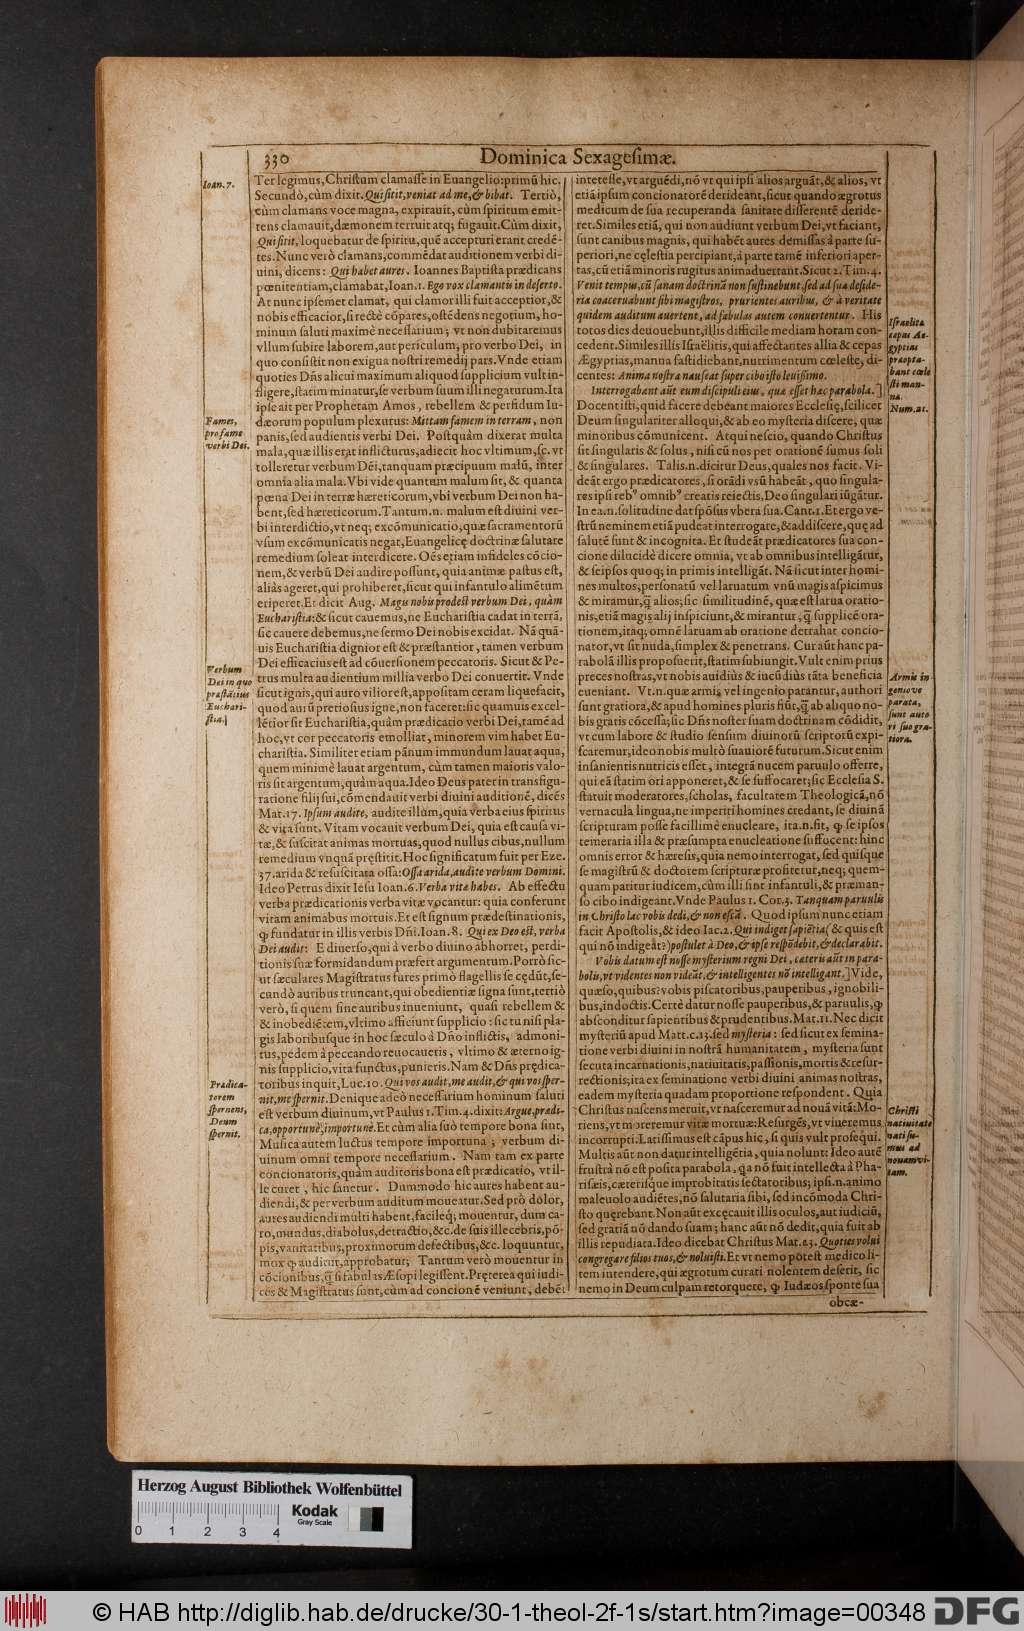 330
Dominica Sexagesimæ.
Ioan. 7.
Ter legimus, Christum clamasse in Euangelio: primũ hic.
Secundò, cùm dixit. Qui sitit, veniat ad me, & bibat. Tertiò,
cùm clamans voce magna, expirauit, cùm spiritum emit-
tens clamauit, dæmonem terruit atq; fugauit. Cùm dixit,
Qui sitit, loquebatur de spiritu, quẽ accepturi erant credẽ-
tes. Nunc verò clamans, commẽdat auditionem verbi di-
uini, dicens: Qui habet aures. Ioannes Baptista prædicans
pœnitentiam, clamabat, Ioan. 1. Ego vox clamantis in deserto.
At nunc ipsemet clamat, qui clamor illi fuit acceptior, &
nobis efficacior, si rectè cõpares, ostẽdens negotium, ho-
minum saluti maximè necessarium; vt non dubitaremus
vllum subire laborem, aut periculum, pro verbo Dei, in
quo consistit non exigua nostri remedij pars. Vnde etiam
quoties Dñs alicui maximum aliquod supplicium vult in-
fligere, statim minatur, se verbum suum illi negaturum. Ita
ipse ait per Prophetam Amos, rebellem & perfidum Iu-
dæorum populum plexurus: Mittam famem in terram, non
panis, sed audientis verbi Dei. Postquàm dixerat multa
mala, quæ illis erat inflicturus, adiecit hoc vltimum, sc. vt
tolleretur verbum Dẽi, tanquam præcipuum malũ, inter
omnia alia mala. Vbi vide quantum malum sit, & quanta
pœna Dei in terræ hæreticorum, vbi verbum Dei non ha-
bent, sed hæreticorum. Tantum. n. malum est diuini ver-
bi interdictio, vt neq; excõmunicatio, quæ sacramentorũ
vsum excõmunicatis negat, Euangelicę doctrinæ salutare
remedium soleat interdicere. Oẽs etiam infideles cõcio-
nem, & verbũ Dei audire possunt, quia animæ pastus est,
aliàs ageret, qui prohiberet, sicut qui infantulo alimẽtum
eriperet. Et dicit Aug. Magis nobis prodest verbum Dei, quàm
Eucharistia: & sicut cauemus, ne Eucharistia cadat in terrã,
sic cauere debemus, ne sermo Dei nobis excidat. Nã quã-
uis Eucharistia dignior est & præstantior, tamen verbum
Dei efficacius est ad cõuersionem peccatoris. Sicut & Pe-
trus multa audientium millia verbo Dei conuertit. Vnde
sicut ignis, qui auro vilior est, appositam ceram liquefacit,
quod aurũ pretiosius igne, non faceret: sic quamuis excel-
lẽtior sit Eucharistia, quàm prædicatio verbi Dei, tamẽ ad
hoc, vt cor peccatoris emolliat, minorem vim habet Eu-
charistia. Similiter etiam pãnum immundum lauat aqua,
quem minimè lauat argentum, cùm tamen maioris valo-
ris sit argentum, quàm aqua. Ideo Deus pater in transfigu-
ratione filij sui, cõmendauit verbi diuini auditionẽ, dicẽs
Mat. 17. Ipsum audite, audite illum, quia verba eius spiritus
& vita sunt. Vitam vocauit verbum Dei, quia est causa vi-
tæ, & suscitat animas mortuas, quod nullus cibus, nullum
remedium vnquã pręstitit. Hoc significatum fuit per Eze.
37. arida & resuscitata ossa: Ossa arida, audite verbum Domini.
Ideo Petrus dixit Iesu Ioan. 6. Verba vitæ habes. Ab effectu
verba prædicationis verba vitæ vocantur: quia conferunt
vitam animabus mortuis. Et est signum prædestinationis,
ꝙ fundatur in illis verbis Dñi. Ioan. 8. Qui ex Deo est, verba
Dei audit: E diuerso, qui à verbo diuino abhorret, perdi-
tionis suæ formidandum præfert argumentum. Porrò sic-
ut sæculares Magistratus fures primò flagellis se cędũt, se-
cundò auribus truncant, qui obedientiæ signa sunt, tertiò
verò, si quem sine auribus inueniunt, quasi rebellem &
& inobediẽtem, vltimo afficiunt supplicio: sic tu nisi pla-
gis laboribusque in hoc sæculo à Dño inflictis, admoni-
tus, pedem à peccando reuocaueris, vltimo & æterno ig-
nis supplicio, vita functus, punieris. Nam & Dñs prędica-
toribus inquit, Luc. 10. Qui vos audit, me audit, & qui vos sper-
nit, me spernit. Denique adeò necessarium hominum saluti
est verbum diuinum, vt Paulus 1. Tim. 4. dixit: Argue, prædi-
ca, opportunè, importunè. Et cùm alia suò tempore bona sint,
Musica autem luctus tempore importuna; verbum di-
uinum omni tempore necessarium. Nam tam ex parte
concionatoris, quàm auditoris bona est prædicatio, vt il-
le curet, hic sanetur. Dummodo hic aures habent au-
diendi, & per verbum auditum moueatur. Sed prò dolor,
aures audiendi multi habent, facileq; mouentur, dum ca-
ro, mundus, diabolus, detractio, &c. de suis illecebris, põ-
pis, vanitatibus, proximorum defectibus, &c. loquuntur,
mox ꝙ audiunt, approbatur; Tantum verò mouentur in
cõcionibus, q̃ si fabulas Æsopi legissent. Pręterea qui iudi-
ces & Magistratus sunt, cùm ad concionẽ veniunt, debẽt
Fames,
pro fame
verbi Dei.
Verbum
Dei in quo
præstãtius
Euchari-
stia.
Prædica-
torem
spernens,
Deum
spernit.
interesse, vt arguẽdi, nõ vt qui ipsi alios arguãt, & alios, vt
etiã ipsum concionatorẽ derideant, sicut quando ægrotus
medicum de sua recuperanda sanitate disserentẽ deride-
ret. Similes etiã, qui non audiunt verbum Dei, vt faciant,
sunt canibus magnis, qui habẽt aures demissas à parte su-
periori, ne cęlestia percipiant, à parte tamẽ inferiori aper-
tas, cũ etiã minoris rugitus animaduertant. Sicut 2. Tim. 4.
Venit tempus, cũ sanam doctrinã non sustinebunt, sed ad sua deside-
ria coaceruabunt sibi magistros, prurientes auribus, & à veritate
quidem auditum auertent, ad fabulas autem conuertentur. His
totos dies deuouebunt, illis difficile mediam horam con-
cedent. Similes illis Israëlitis, qui affectantes allia & cepas
Ægyptias, manna fastidiebant, nutrimentum cœleste, di-
centes: Anima nostra nauseat super cibo isto leuissimo.
Interrogabant aũt eum discipuli eius, quæ esset hæc parabola.]
Docent isti, quid facere debeant maiores Ecclesię, scilicet
Deum singulariter alloqui, & ab eo mysteria discere, quæ
minoribus cõmunicent. Atqui nescio, quando Christus
sit singularis & solus, nisi cũ nos per orationẽ sumus soli
& singulares. Talis. n. dicitur Deus, quales nos facit. Vi-
deãt ergo prædicatores, si orãdi vsũ habeãt, quo singula-
res ipsi rebꝰ omnibꝰ creatis reiectis, Deo singulari iũgãtur.
In ea. n. solitudine dat spõsus vbera sua. Cant. 1. Et ergo ve-
strũ neminem etiã pudeat interrogare, & addiscere, quę ad
salutẽ sunt & incognita. Et studeãt prædicatores sua con-
cione dilucidè dicere omnia, vt ab omnibus intelligãtur,
& seipsos quoq; in primis intelligãt. Nã sicut inter homi-
nes multos, personatũ vel laruatum vnũ magis aspicimus
& miramur, q̃ alios; sic similitudinẽ, quæ est larua oratio-
nis, etiã magis alij inspiciunt, & mirantur, q̃ supplicẽ ora-
tionem, itaq; omnẽ laruam ab oratione detrahat concio-
nator, vt sit nuda, simplex & penetrans. Cur aũt hanc pa-
rabolã illis proposuerit, statim subiungit. Vult enim prius
preces nostras, vt nobis auidiùs & iucũdiùs tãta beneficia
eueniant. Vt. n. quæ armis vel ingenio parantur, authori
sunt gratiora, & apud homines pluris fiũt, q̃ ab aliquo no-
bis gratis cõcessa; sic Dñs noster suam doctrinam cõdidit,
vt cum labore & studio sensum diuinorũ scriptorũ expi-
scaremur, ideo nobis multò suauiorẽ futurum. Sicut enim
insanientis nutricis esset, integrã nucem paruulo offerre,
qui eã statim ori apponeret, & se suffocaret; sic Ecclesia S.
statuit moderatores, scholas, facultatem Theologicã, nõ
vernacula lingua, ne imperiti homines credant, se diuinã
scripturam posse facillimè enucleare, ita. n. fit, ꝙ se ipsos
temeraria illa & præsumpta enucleatione suffocent: hinc
omnis error & hæresis, quia nemo interrogat, sed quisque
se magistrũ & doctorem scripturæ profitetur, neq; quem-
quam patitur iudicem, cùm illi sint infantuli, & præman-
so cibo indigeant. Vnde Paulus 1. Cor. 3. Tanquam paruulis
in Christo lac vobis dedi, & non escã. Quod ipsum nunc etiam
facit Apostolis, & ideo Iac. 2. Qui indiget sapiẽtia (& quis est
qui nõ indigeãt?) postulet à Deo, & ipse respõdebit, & declarabit.
Vobis datum est nosse mysterium regni Dei, cæteris aũt in para-
bolis, vt videntes non videãt, & intelligentes nõ intelligant.] Vide,
quæso, quibus? vobis piscatoribus, pauperibus, ignobili-
bus, indoctis. Certè datur nosse pauperibus, & paruulis, ꝙ
absconditur sapientibus & prudentibus. Mat. 11. Nec dicit
mysteriũ apud Matt. c. 13. sed mysteria: sed sicut ex semina-
tione verbi diuini in nostrã humanitatem, mysteria sunt
secuta incarnationis, natiuitatis, passionis, mortis & resur-
rectionis; ita ex seminatione verbi diuini animas nostras,
eadem mysteria quadam proportione respondent. Quia
Christus nascens meruit, vt nasceremur ad nouã vitã: Mo-
riens, vt moreremur vitæ mortuæ: Resurgẽs, vt viueremus
incorrupti. Latissimus est cãpus hic, si quis vult prosequi.
Multis aũt non datur intelligẽtia, quia nolunt: Ideo autẽ
frustrà nõ est posita parabola, q̃a nõ fuit intellecta à Pha-
risæis, cæterisque improbitatis sectatoribus; ipsi. n. animo
maleuolo audiẽtes, nõ salutaria sibi, sed incõmoda Chri-
sto quęrebant. Non aũt excęcauit illis oculos, aut iudiciũ,
sed gratiã nõ dando suam; hanc aũt nõ dedit, quia fuit ab
illis repudiata. Ideo dicebat Christus Mat. 23. Quoties volui
congregare filios tuos, & noluisti. Et vt nemo põtest medico li-
tem intendere, qui ægrotum curari nolentem deserit, sic
nemo in Deum culpam retorquere, ꝙ Iudæos sponte sua
obcæ-
Israelitæ
cepas Æ-
gyptias
præopta-
bant cœle
sti man-
na.
Num. 21.
Armis in
geniove
parata,
sunt auto
ri suo gra-
tiora.
Christi
natiuitate
nati su-
mus ad
nouam vi-
tam.
Herzog August Bibliothek Wolfenbüttel
0 1 2 3 4
Kodak
Gray Scale
© HAB http://diglib.hab.de/drucke/30-1-theol-2f-1s/start.htm?image=00348
DFG